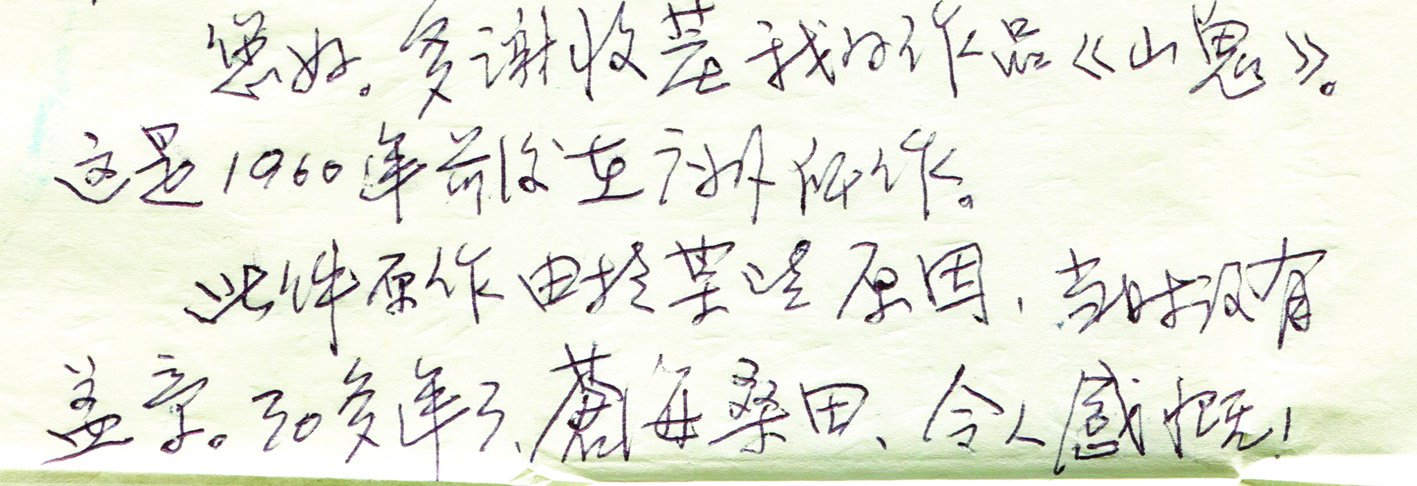 您好。多谢收藏我的作品《山鬼》。
这是1960年前后在作。
此件原作由於某些原因,当时没有
盖章。30多年了、蒼海桑田、令人感慨!